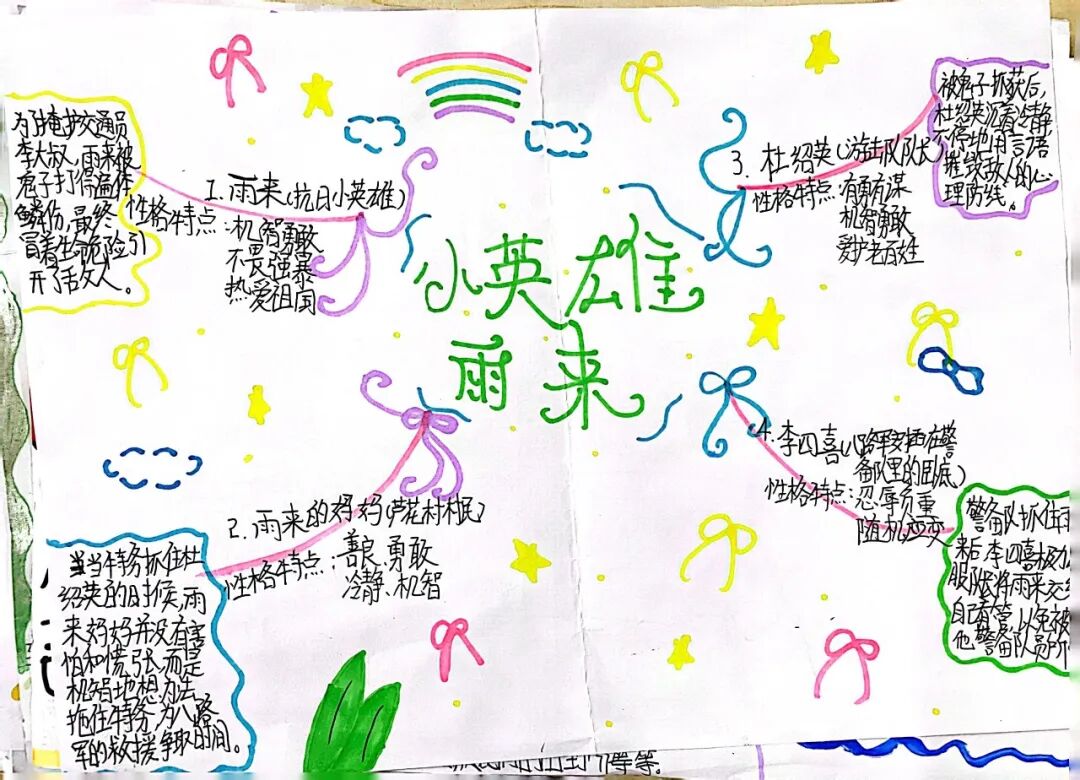 小英雄
雨来
1. 雨来(抗日小英雄)
性格特点:机智勇敢
不畏强暴
热爱祖国
为了掩护交通员
李大叔,雨来被
鬼子打得遍体
鳞伤,最终
冒着生命危险引
开了敌人。
2. 雨来的妈妈(芦花村村民)
性格特点:善良、勇敢
冷静、机智
当当特务抓住杜
绍英的时候,雨
来妈妈并没有害
怕和慌张,而是
机智地想办法
拖住特务,为八路
军的救援争取时间。
3. 杜绍英(游击队队长)
性格特点:有勇有谋
机智勇敢
爱护老百姓
被鬼子抓获后,
杜绍英沉着冷静
不停地用言语
摧毁敌人的心
理防线。
4. 李四喜(八路军安插在警
备队里的卧底)
性格特点:忍辱负重
随机应变
警备队抓住雨
来后,李四喜极力
服队长将雨来交给
自己看管,以免被
他警备队员所
等等.